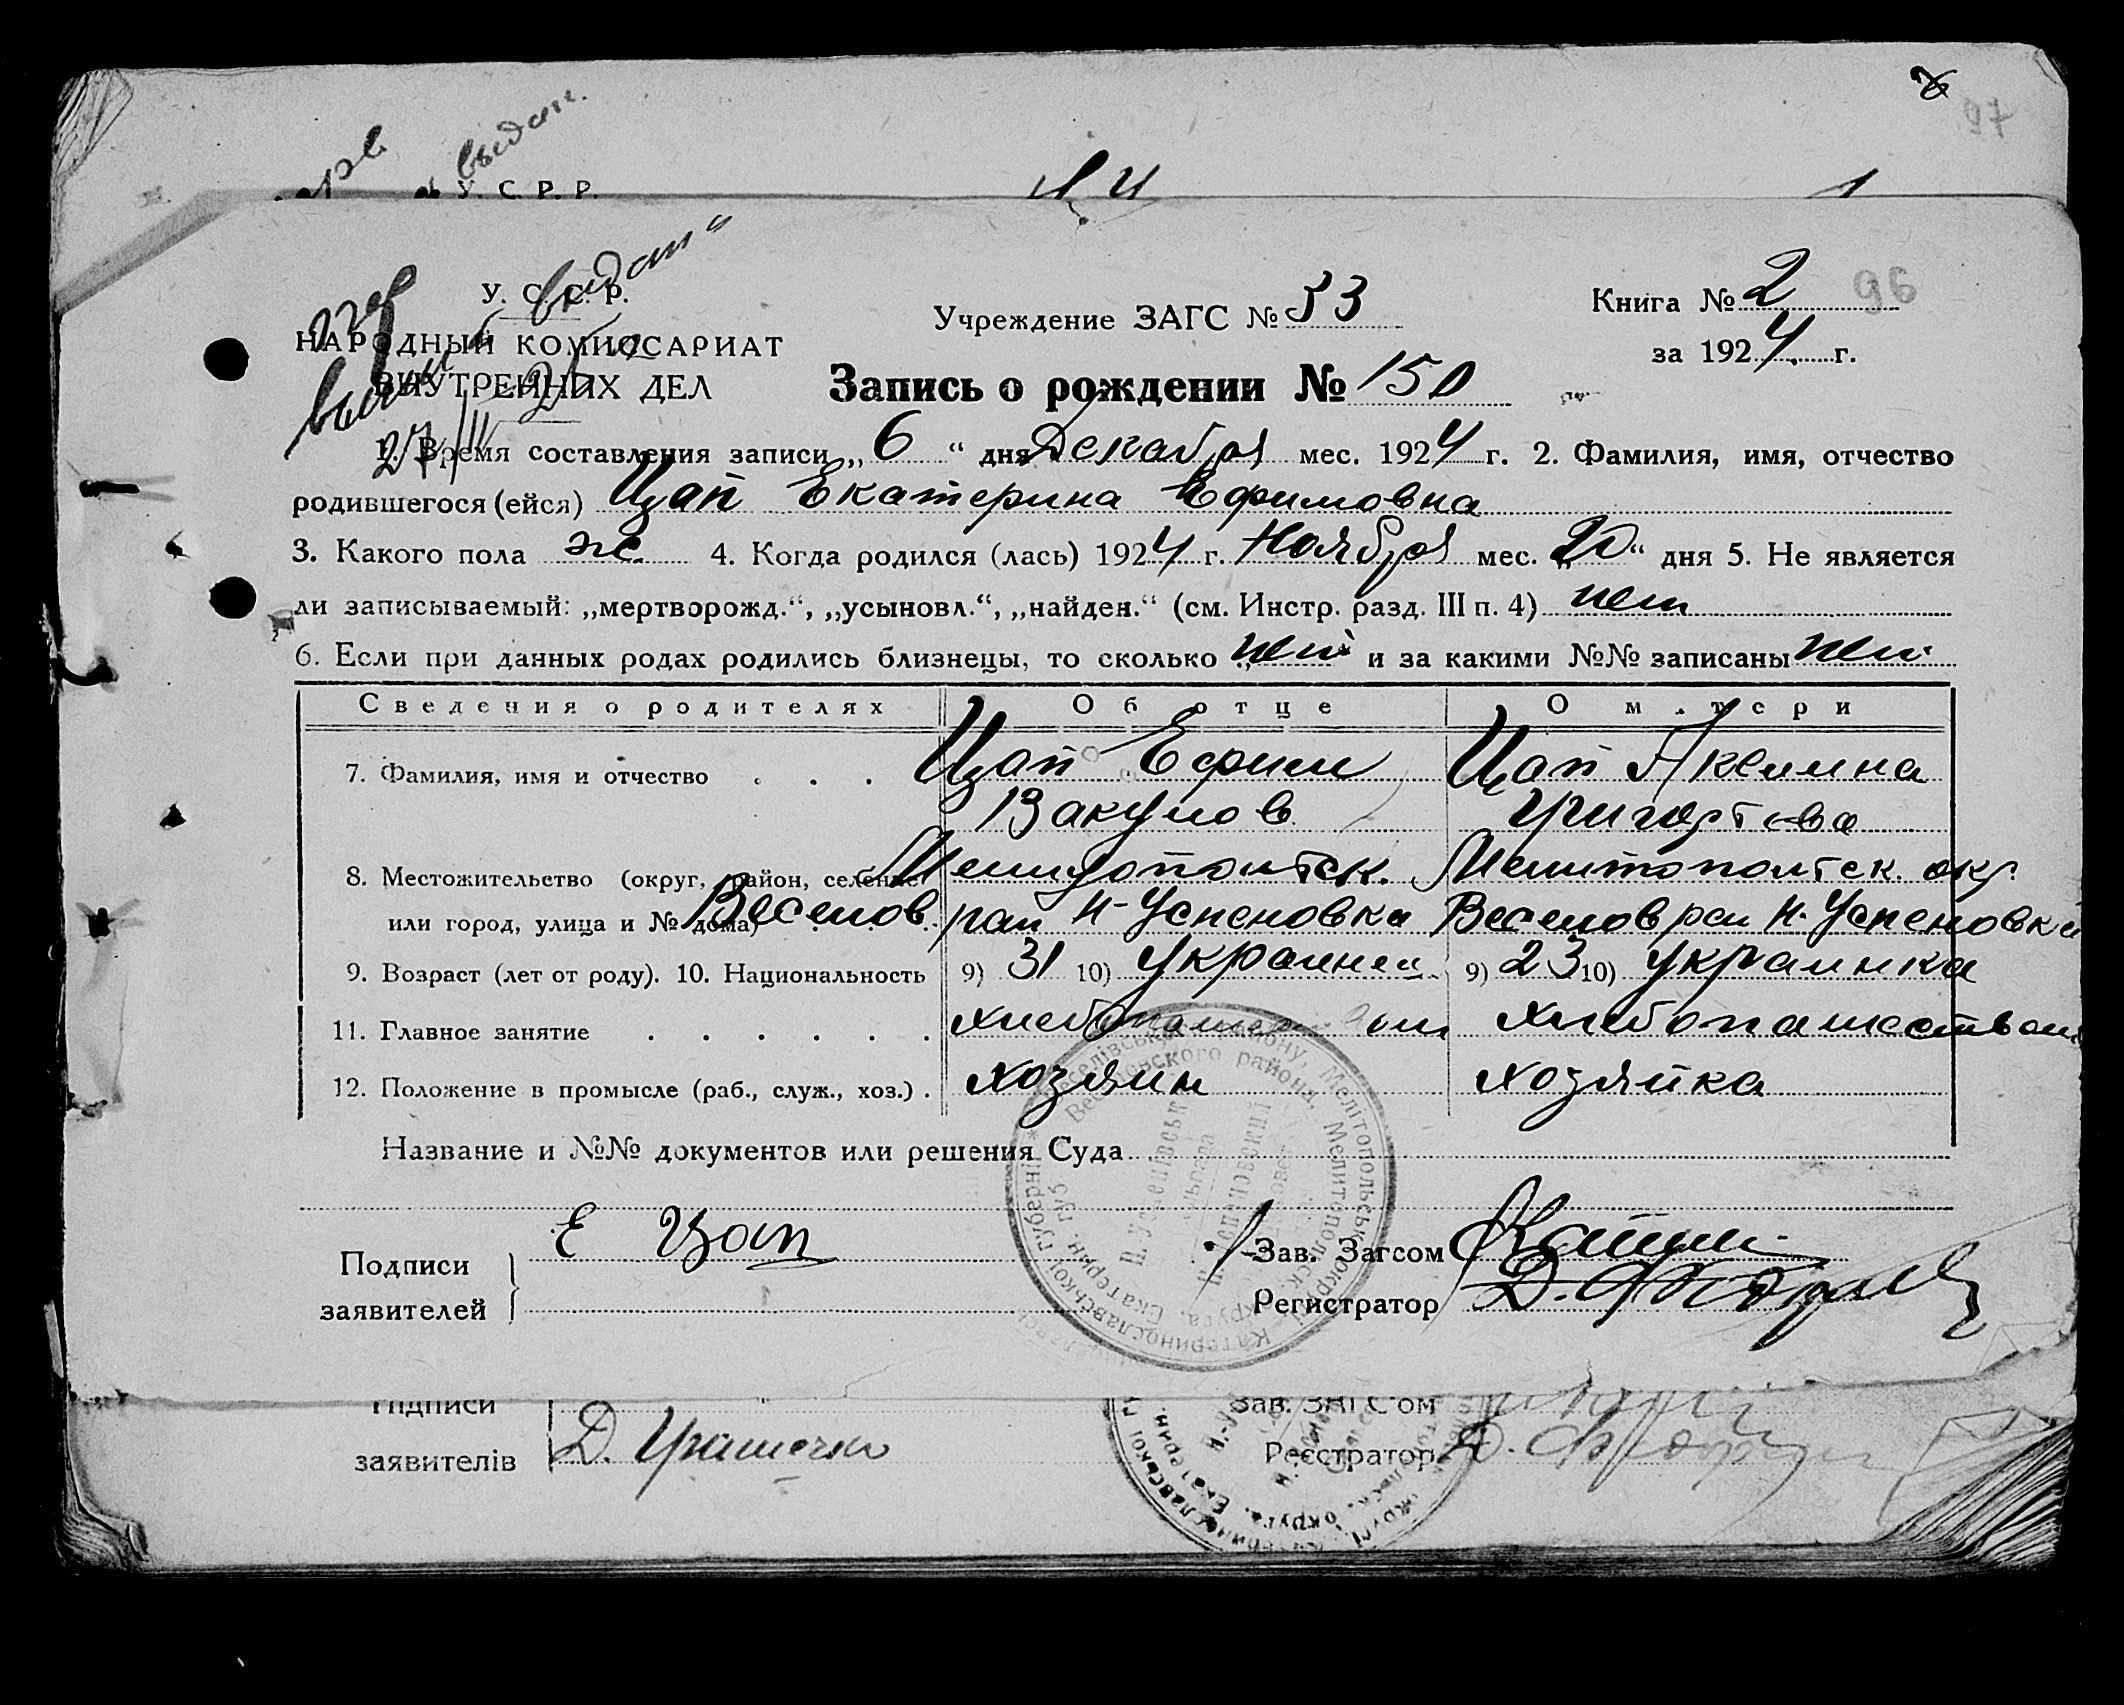 выдан.
97
У. С. Р. Р.
У. С. С. Р.
НАРОДНЫЙ КОМИССАРИАТ
ВНУТРЕННИХ ДЕЛ
27/III
Учреждение ЗАГС № 53
Книга № 2
96
за 1924 г.
Запись о рождении № 150
1. Время составления записи „ 6 “ дня Декабря мес. 1924 г. 2. Фамилия, имя, отчество
родившегося (ейся) Цап Екатерина Ефимовна
3. Какого пола ж. 4. Когда родился (лась) 1924 г. Ноября мес. „20“ дня 5. Не является
ли записываемый: „мертворожд.“, „усыновл.“, „найден.“ (см. Инстр. разд. III п. 4) нет
6. Если при данных родах родились близнецы, то сколько нет и за какими №№ записаны нет
Сведения о родителях Об отце О матери
7. Фамилия, имя и отчество . . . Цап Ефим Цап Акелина
Вакулов
8. Местожительство (округ, район, селение Мелитопольск. Мелитопольск. окр.
или город, улица и № дома) Веселов. рай Н-Успеновка Веселов рай Н-Успеновка
9. Возраст (лет от роду). 10. Национальность 9) 31 10) Украинец 9) 23 10) Украинка
11. Главное занятие . . . . . . хлебопашеством хлебопашеством
12. Положение в промысле (раб., служ., хоз.) . хозяин хозяйка
Название и №№ документов или решения Суда
Е Цап
Подписи
заявителей
Зав. Загсом
Регистратор
Підписи
заявителів
Зав. ЗАГС'ом
Реєстратор